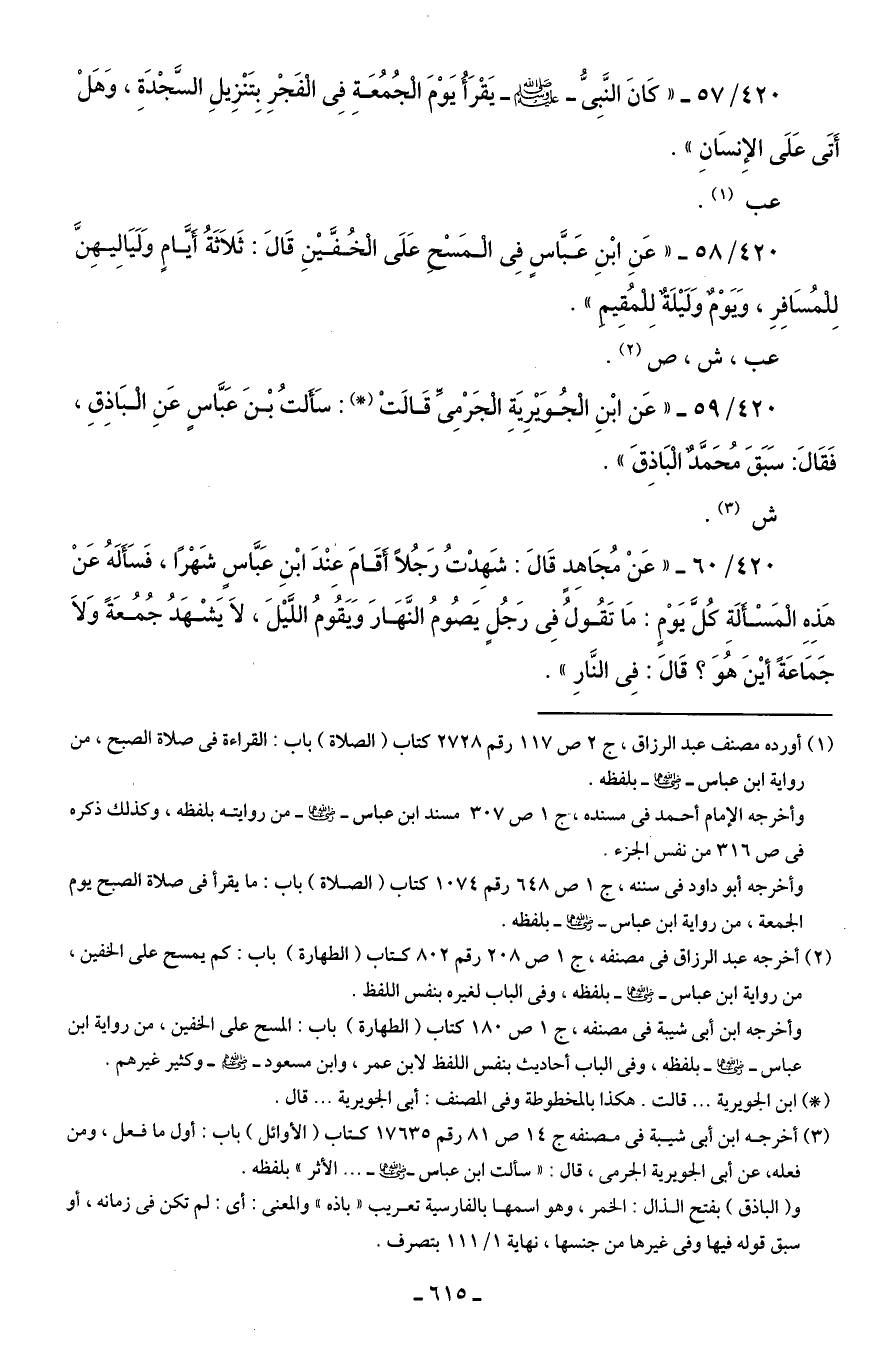 ٤٢٠/ ٥٧ ـ « كَانَ النَّبِىُّ ـ ﷺ ـ يَقْرَأُ يَوْمَ الْجُمُعَةِ فِى الْفَجْرِ بِتَنْزِيلِ السَّجْدَةِ ، وَهَلْ
أَتَى عَلَى الإِنسَانِ » .
عب (١) .
٤٢٠/ ٥٨ ـ « عَنِ ابْنِ عَبَّاسٍ فِى الْمَسْحِ عَلَى الْخُفَّيْنِ قَالَ : ثَلاَثَةُ أَيَّامٍ وَلَيَالِيهِنَّ
لِلْمُسَافِرِ ، وَيَوْمٌ وَلَيْلَةٌ لِلْمُقِيمِ » .
عب ، ش ، ص (٢) .
٤٢٠/ ٥٩ ـ « عَنِ ابْنِ الْجُوَيْرِيَةِ الْجَرْمِىِّ قَالَتْ (*) : سَأَلتُ بْنَ عَبَّاسٍ عَنِ الْبَاذِقِ ،
فَقَالَ: سَبَقَ مُحَمَّدٌ الْبَاذِقَ » .
ش (٣) .
٤٢٠/ ٦٠ ـ « عَنْ مُجَاهِدٍ قَالَ : شَهِدْتُ رَجُلاً أَقَامَ عِنْدَ ابْنِ عَبَّاسٍ شَهْرًا ، فَسَأَلَهُ عَنْ
هَذِهِ الْمَسْأَلَةِ كُلَّ يَوْمٍ : مَا تَقُولُ فِى رَجُلٍ يَصُومُ النَّهَارَ وَيَقُومُ اللَّيْلَ ، لاَ يَشْهَدُ جُمُعَةً وَلاَ
جَمَاعَةً أَيْنَ هُوَ ؟ قَالَ : فِى النَّارِ » .
(١) أورده مصنف عبد الرزاق ، ج ٢ ص ١١٧ رقم ٢٧٢٨ كتاب ( الصلاة ) باب : القراءة فى صلاة الصبح ، من
رواية ابن عباس ـ رضي الله عنهما ـ بلفظه .
وأخرجه الإمام أحمد فى مسنده ، ج ١ ص ٣٠٧ مسند ابن عباس ـ رضي الله عنهما ـ من روايته بلفظه ، وكذلك ذكره
فى ص ٣١٦ من نفس الجزء .
وأخرجه أبو داود فى سننه ، ج ١ ص ٦٤٨ رقم ١٠٧٤ كتاب ( الصلاة ) باب : ما يقرأ فى صلاة الصبح يوم
الجمعة ، من رواية ابن عباس ـ رضي الله عنهما ـ بلفظه .
(٢) أخرجه عبد الرزاق فى مصنفه ، ج ١ ص ٢٠٨ رقم ٨٠٢ كتاب ( الطهارة ) باب : كم يمسح على الخفين ،
من رواية ابن عباس ـ رضي الله عنهما ـ بلفظه ، وفى الباب لغيره بنفس اللفظ .
وأخرجه ابن أبى شيبة فى مصنفه ، ج ١ ص ١٨٠ كتاب ( الطهارة ) باب : المسح على الخفين ، من رواية ابن
عباس ـ رضي الله عنهما ـ بلفظه ، وفى الباب أحاديث بنفس اللفظ لابن عمر ، وابن مسعود ـ رضي الله عنهما ـ وكثير غيرهم .
(*) ابن الجويرية ... قالت . هكذا بالمخطوطة وفى المصنف : أبى الجويرية ... قال .
(٣) أخرجه ابن أبى شيبة فى مصنفه ج ١٤ ص ٨١ رقم ١٧٦٣٥ كتاب ( الأوائل ) باب : أول ما فعل ، ومن
فعله، عن أبى الجويرية الجرمى ، قال : « سألت ابن عباس ـ رضي الله عنهما ـ ... الأثر » بلفظه .
و( الباذق ) بفتح الذال : الخمر ، وهو اسمها بالفارسية تعريب « باذه » والمعنى : أى : لم تكن فى زمانه ، أو
سبق قوله فيها وفى غيرها من جنسها ، نهاية ١/ ١١١ بتصرف .
ـ ٦١٥ ـ